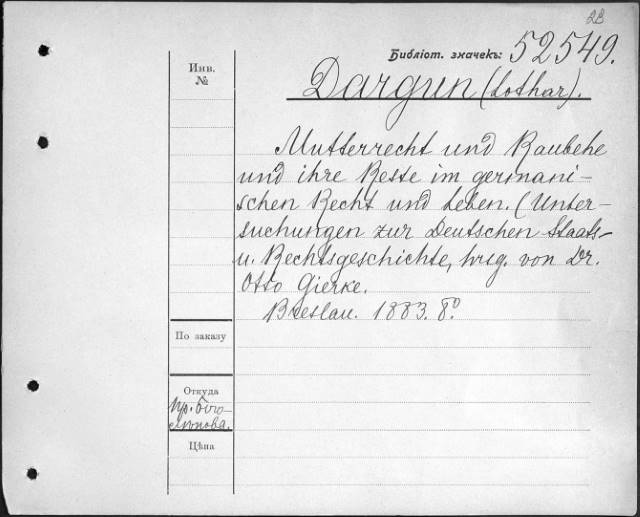 28
Библіот. значекъ: 52549.
Инв.
№
Dargun (Lothar).
Mutterrecht und Raubehe
und ihre Reste im germani-
schen Recht und Leben. (Unter-
suchungen zur Deutschen Staats-
u. Rechtsgeschichte, hrsg. von Dr.
Otto Gierke.
Breslau. 1883. 8º.
По заказу
Откуда
пр. Бого-
лѣпова.
Цѣна